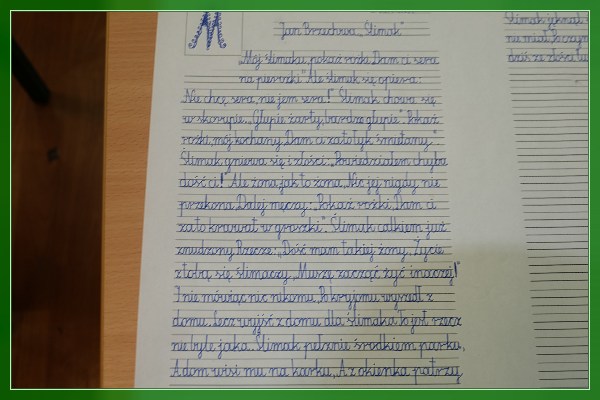 M
Jan Brzechwa „Ślimak”
„Mój ślimaku, pokaż rożki, Dam ci sera
na pierożki.” Ale ślimak się opiera:
„Nie chcę sera, nie jem sera!” Ślimak chowa się
w skorupie. „Głupie żarty, bardzo głupie”. „Pokaż
rożki, mój kochany, Dam ci za to łyk śmietany.”
Ślimak gniewa się i złości. „Powiedziałem chyba
dość ci!” Ale żona jak to żona, Nic jej nigdy nie
przekona, Dalej męczy: „Pokaż rożki, Dam ci
za to krawat w groszki”. Ślimak całkiem już
znudzony Rzecze: „Dość mam takiej żony, Życie
z tobą się ślimaczy, „Muszę zacząć żyć inaczej!”
I nie mówiąc nic nikomu, Po kryjomu wyszedł z
domu. Lecz wyjść z domu dla ślimaka to jest rzecz
nie byle jaka. Ślimak pełznie środkiem parku,
A dom wisi mu na karku, A z okienka patrzy
Ślimak
nie miał
dziś ze złości